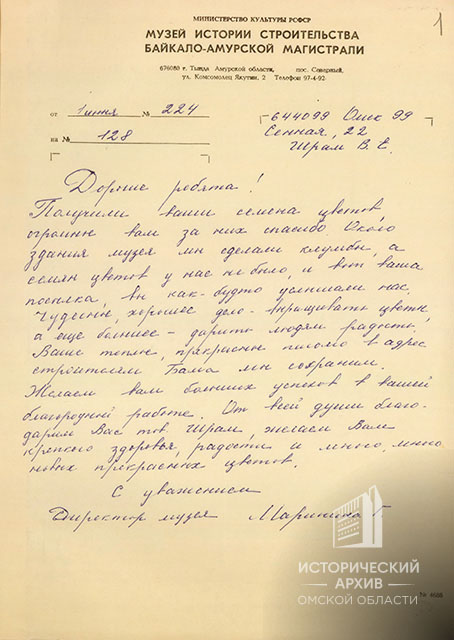 МИНИСТЕРСТВО КУЛЬТУРЫ РСФСР
1
МУЗЕЙ ИСТОРИИ СТРОИТЕЛЬСТВА
БАЙКАЛО-АМУРСКОЙ МАГИСТРАЛИ
676080 г. Тында Амурской области, пос. Северный,
ул. Комсомолец Якутии, 2 Телефон 97-4-92
от 1 июня № 224
на № 128
644099 Омск 99
Сенная, 22
Шрам В. Е.
Дорогие ребята!
Получили ваши семена цветов,
огромн вам за них спасибо. Около
здания музея мы сделали клумбы, а
семян цветов у нас не было, и вот ваша
посылка, вы как-будто услышали нас.
Чудесное, хорошее дело - выращивать цветы,
а еще большее - дарить людям радость.
Ваше теплое, прекрасное письмо в адрес
строителям Бама мы сохраним.
Желаем вам больших успехов в вашей
благородной работе. От всей души благо-
дарим Вас тов. Шрам, желаем Вам
крепкого здоровья, радости и много, много
новых прекрасных цветов.
С уважением
Директор музея
ИСТОРИЧЕСКИЙ
АРХИВ
ОМСКОЙ ОБЛАСТИ